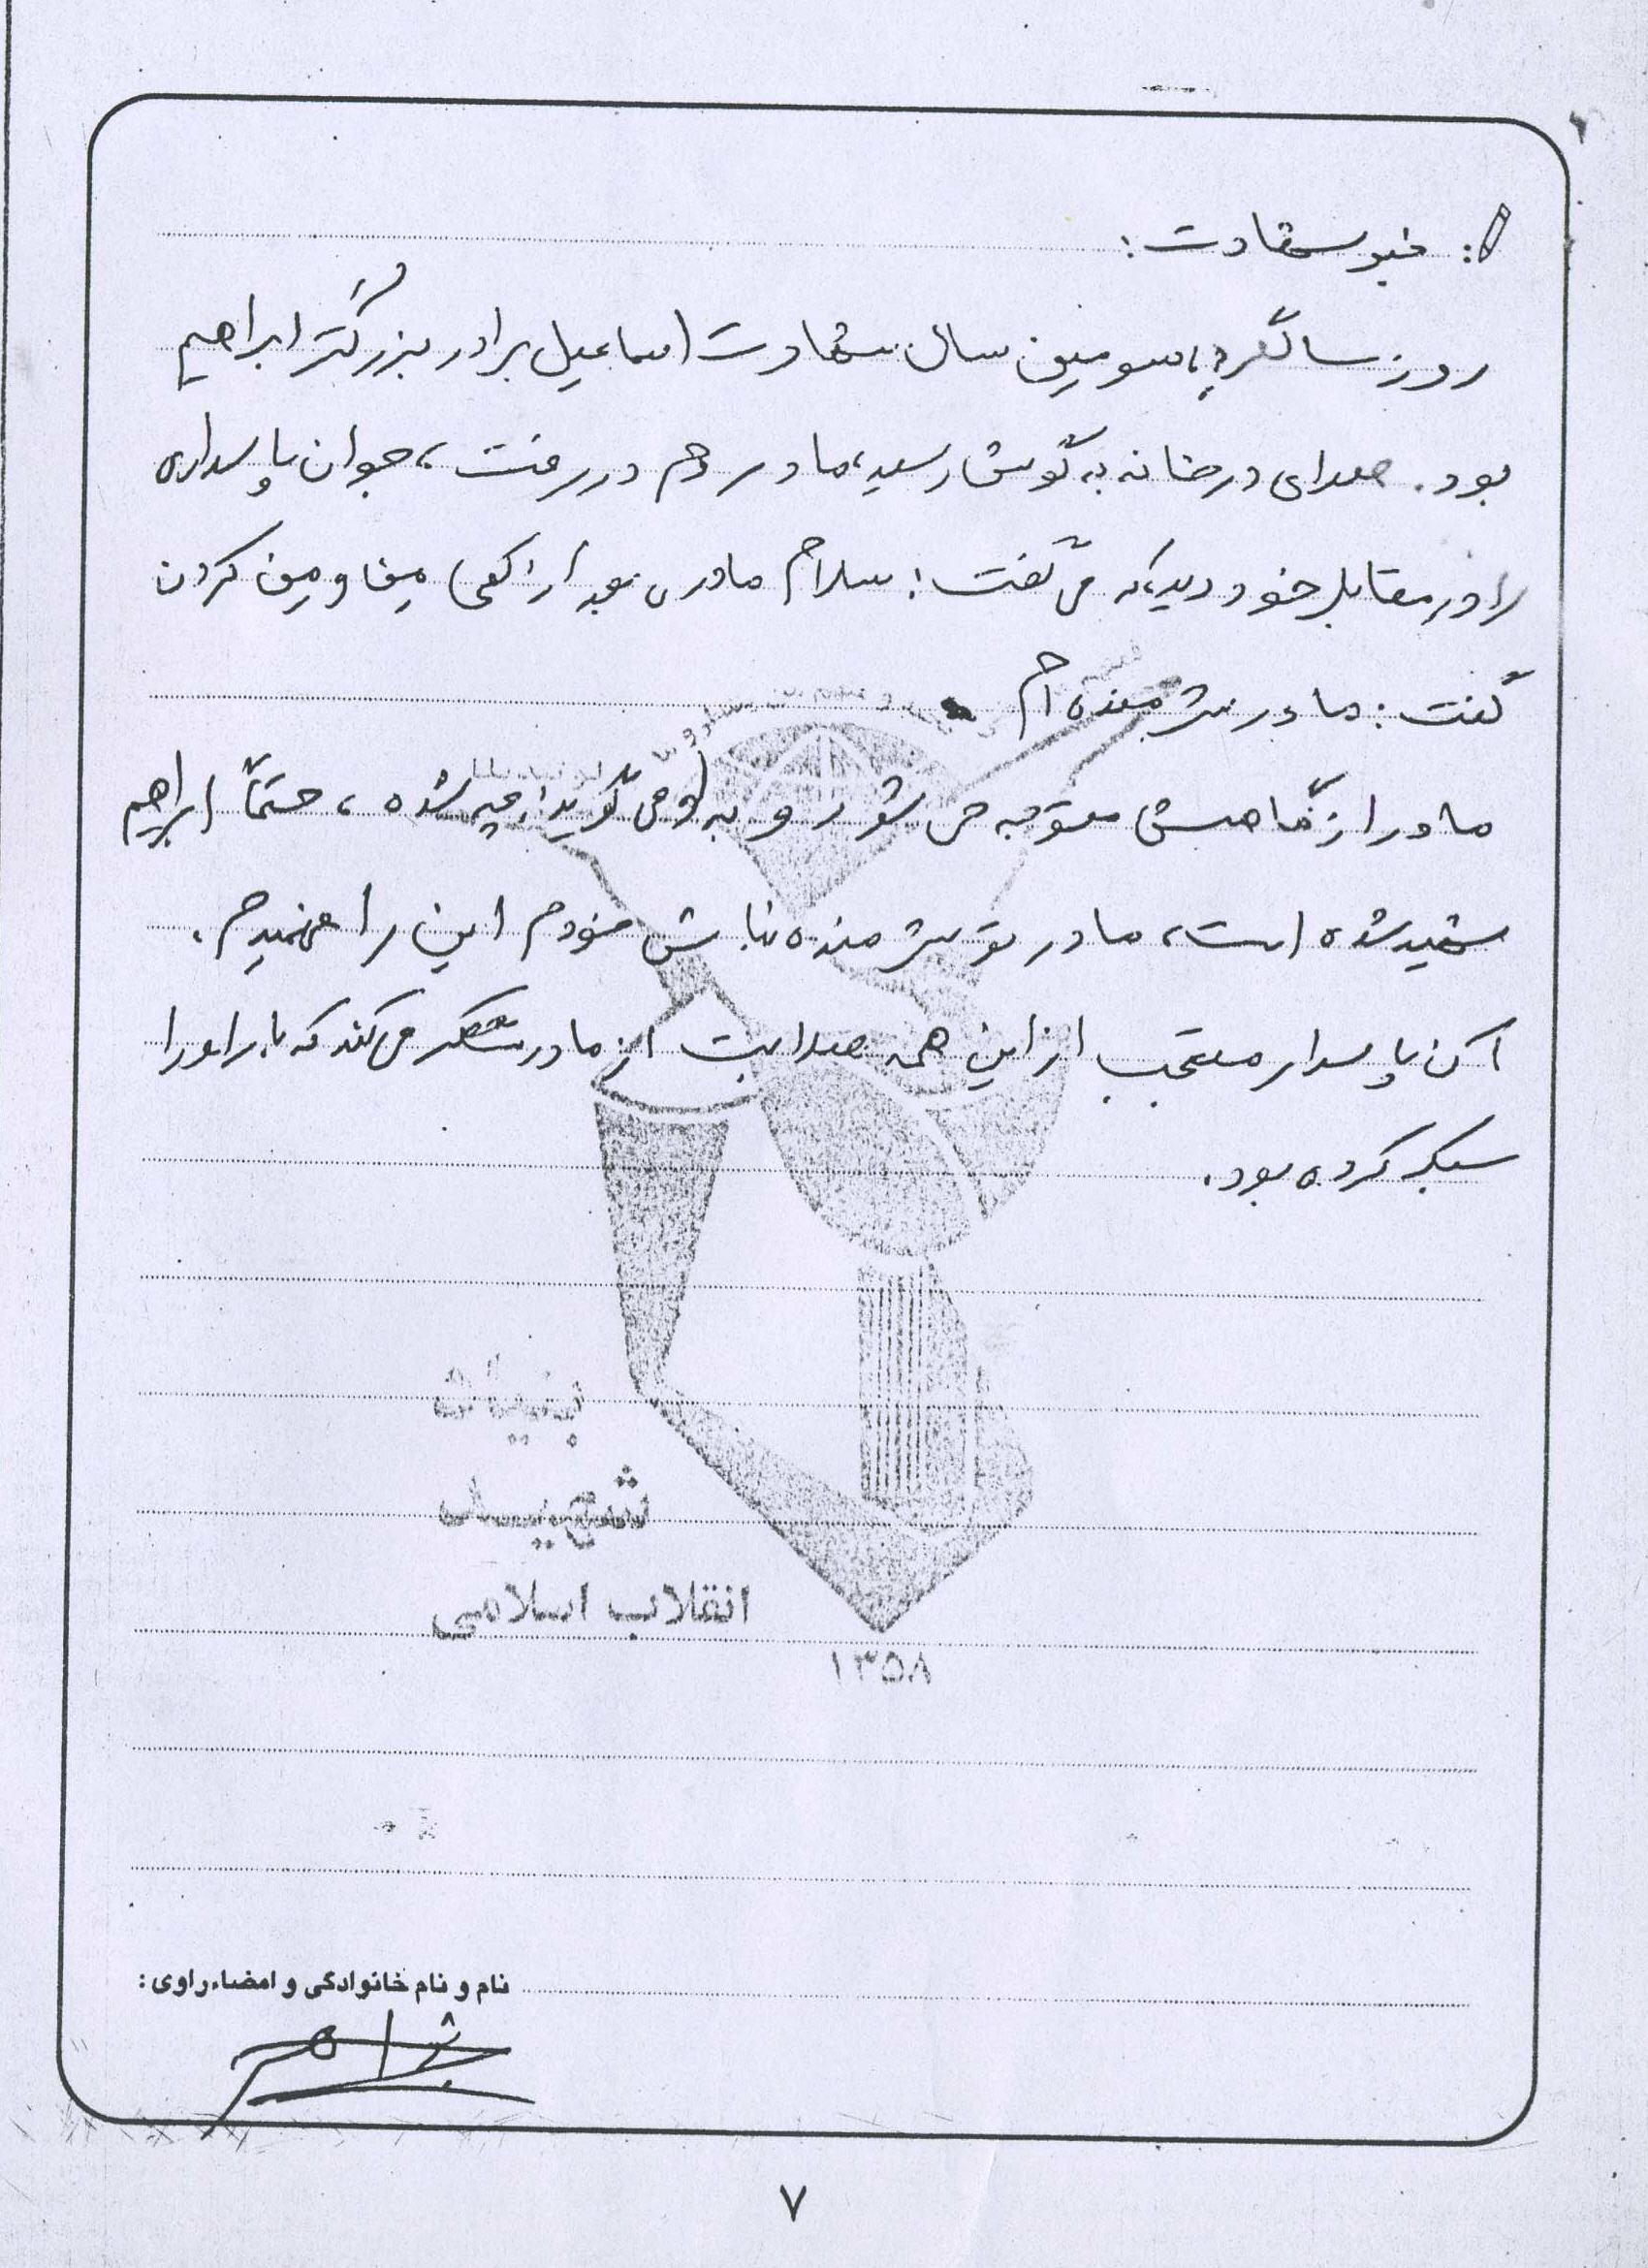 خبر شهادت:
روز سالگرد، سومین سال شهادت اسماعیل برادر بزرگتر ابراهیم
بود. صدای در خانه به گوش رسید، مادر دم در رفت، جوان پاسداری
را در مقابل خود دید، که می گفت: سلام مادر، بعد از کمی من و من کردن
گفت: مادر شرمنده ام
مادر از نگاهش متوجه می شود و به او می گوید: چه شده، حتماً ابراهیم
شهید شده است، مادر تو شرمنده نباش خودم این را فهمیدم.
آن پاسدار متعجب از این همه صلابت از مادر تشکر می کند که بار او را
سبک کرده بود.
بنیاد
شهید
انقلاب اسلامی
۱۳۵۸
نام و نام خانوادگی و امضاء راوی:
۷